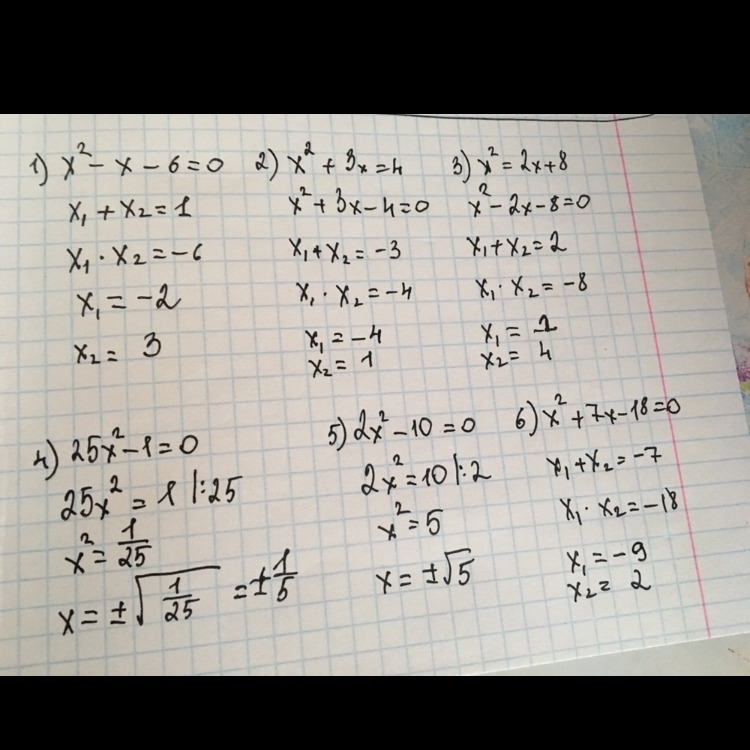 1) x² - x - 6 = 0
x₁ + x₂ = 1
x₁ · x₂ = -6
x₁ = -2
x₂ = 3
2) x² + 3x = 4
x² + 3x - 4 = 0
x₁ + x₂ = -3
x₁ · x₂ = -4
x₁ = -4
x₂ = 1
3) x² = 2x + 8
x² - 2x - 8 = 0
x₁ + x₂ = 2
x₁ · x₂ = -8
x₁ =
x₂ = 4
4) 25x² - 1 = 0
25x² = 1 |:25
x² = 1/25
x = ±√(1/25) = ±1/5
5) 2x² - 10 = 0
2x² = 10 |:2
x² = 5
x = ±√5
6) x² + 7x - 18 = 0
x₁ + x₂ = -7
x₁ · x₂ = -18
x₁ = -9
x₂ = 2